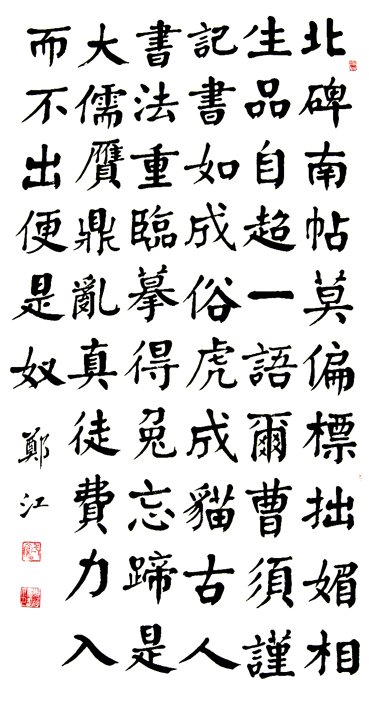 北碑南帖莫偏標拙媚相
生品自超一語爾曹須謹
記書如成俗虎成貓古人
書法重臨摹得兔忘蹄是
大儒贋鼎亂真徒費力入
而不出便是奴
鄭江